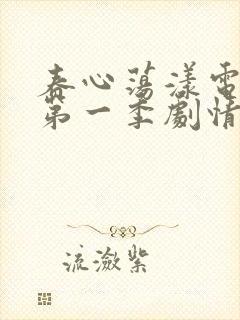 春心蕩漾電
第一季劇情
流瀲紫